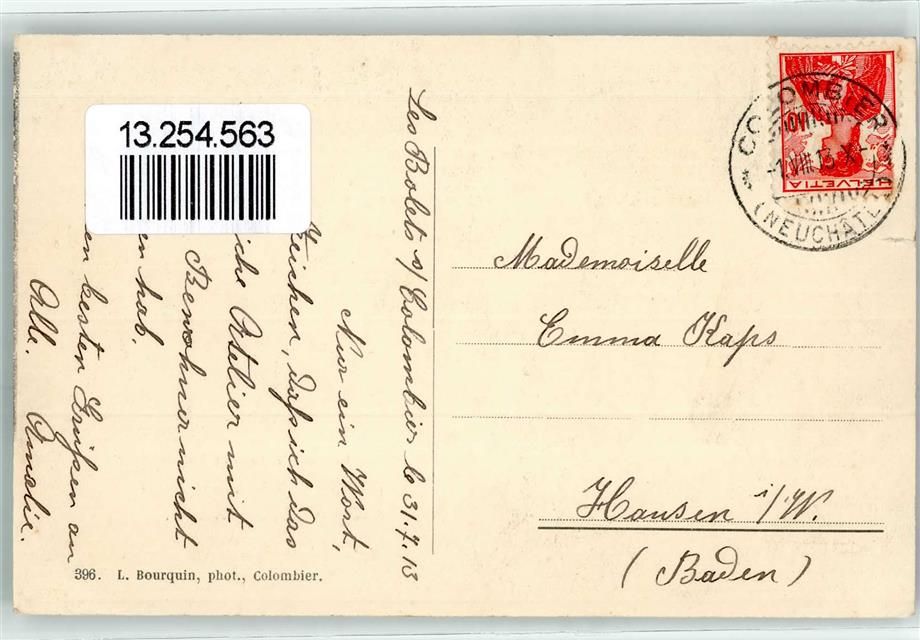 13.254.563
Les Bolets s/ Colombier le 31.7.13
Nur ein Wort,
Zeichen, dass ich das
Atelier mit
Bewohner nicht
hab.
besten Grüßen an
Alle. Emalie.
COLOMBIER
-1.VIII.13.X-
(NEUCHÂTEL)
HELVETIA
Mademoiselle
Emma Kaps
Hausen i/W.
(Baden)
396. L. Bourquin, phot., Colombier.